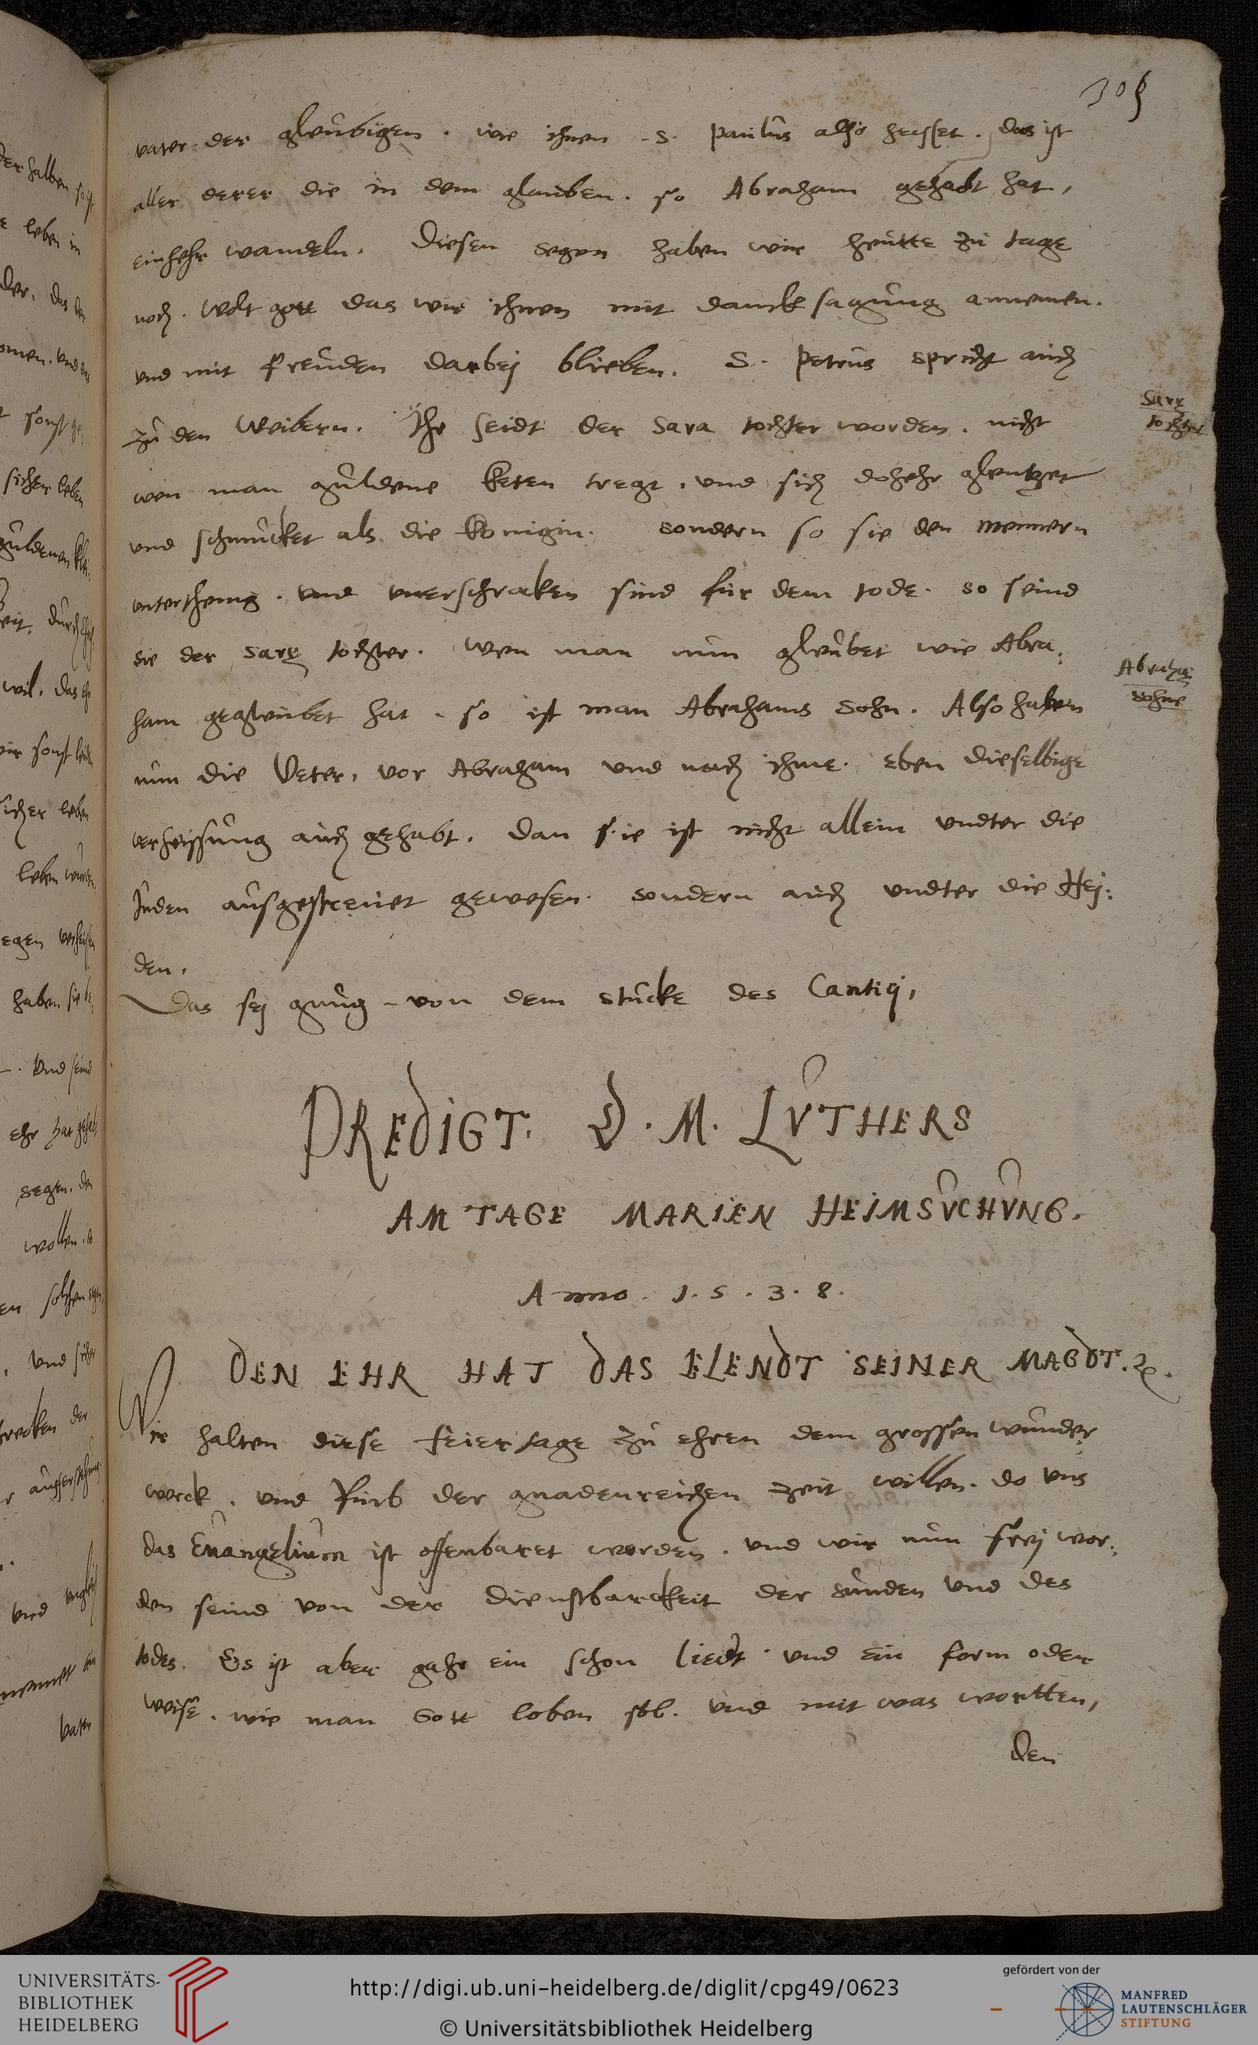 305
vater der gleubigen. wie ihnen .S. Paulus also heisset. das ist
aller derer die in dem glauben. so Abraham gehabt hat,
einhehr wandeln. Diesen segen haben wir heutte zu tage
noch. Wolt gott das wir ihnen mit dancksagung annemen.
und mit freuden darbej blieben. S. Petrus spricht auch
zu den Weibern. Ihr seidt der Sara tochter worden. nicht
wen man guldene keten tregt. und sich dohehr glentzet
und schmucket als die konigin. sondern so sie den mennern
unterthenig. und unerschracken sind fur dem tode. so seind
sie der Sarę tochter. Wen man nun gleubet wie Abra:
ham gegleubet hat. so ist man Abrahams Sohn. Also haben
nun die Veter, vor Abraham und nach ihme. eben dieselbige
verheissung auch gehabt. dan sie ist nicht allein undter die
Juden ausgestreuet gewesen. sondern auch undter die Hej:
den.
Das sej gnug von dem stucke des Cantici,
Sarę
tochter
Abrahę
sohne
PREDIGT. D. M. LVTHERS
AM TAGE MARIEN HEIMSVCHVNG.
Anno. 1. 5. 3. 8.
DEN EHR HAT DAS ELENDT SEINER MAGDT. ꝛc.
Wir halten diese feiertage zu ehren dem grossen wunder
werck. und fur der gnadenreichen zeit willen. do uns
das Euangelium ist offenbaret worden. und wir nun frej wor:
den seind von der dienstbarckeit der sunden und des
todes. Es ist aber gahr ein schon liedt. und ein form oder
weise. wie man Gott loben sol. und mit was wortten,
den
UNIVERSITÄTS-
BIBLIOTHEK
HEIDELBERG
http://digi.ub.uni-heidelberg.de/diglit/cpg49/0623
© Universitätsbibliothek Heidelberg
gefördert von der
MANFRED
LAUTENSCHLÄGER
STIFTUNG